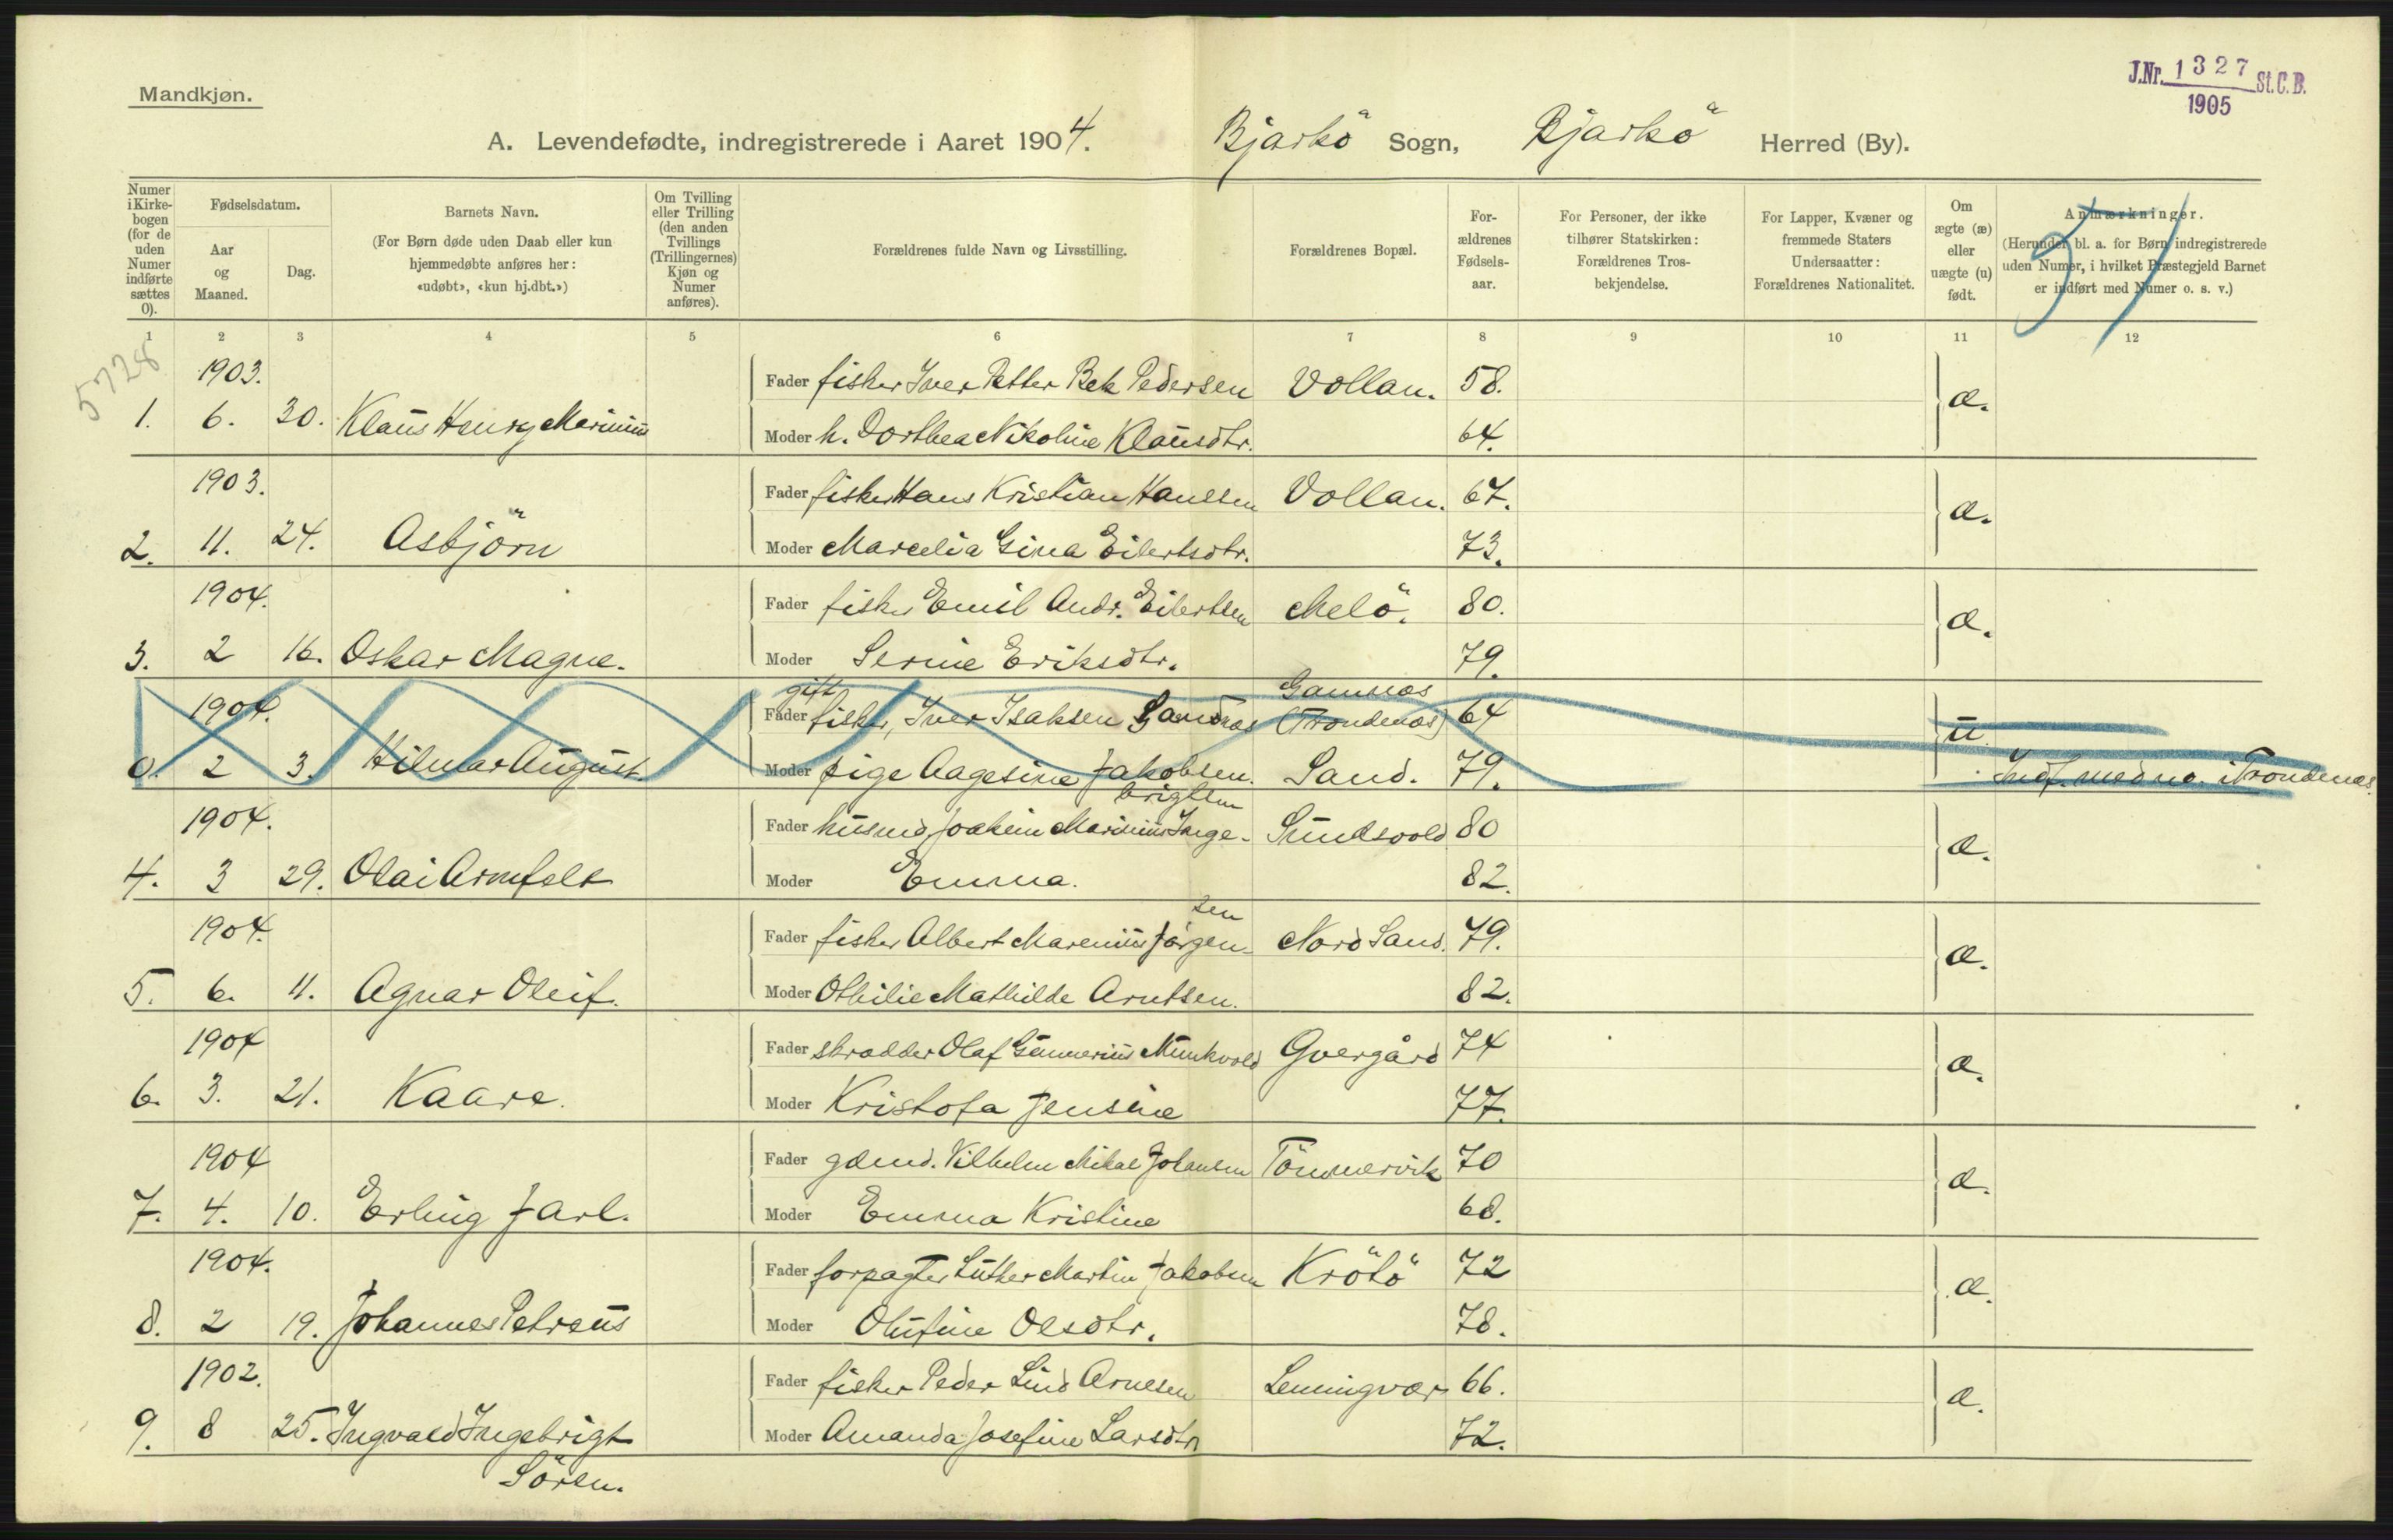 Mandkjøn.
J.Nr. 1327 St.C.B.
1905
A. Levendefødte, indregistrerede i Aaret 1904. Bjarkö Sogn, Bjarkö Herred (By).
Numer i Kirkebogen (for de uden Numer indførte sættes 0).
Fødselsdatum.
Aar og Maaned.
Dag.
Barnets Navn.
(For Børn døde uden Daab eller kun hjemmedøbte anføres her: «udøbt», «kun hj.dbt.»)
Om Tvilling eller Trilling (den anden Tvillings (Trillingernes) Kjøn og Numer anføres).
Forældrenes fulde Navn og Livsstilling.
Forældrenes Bopæl.
Forældrenes Fødselsaar.
For Personer, der ikke tilhører Statskirken: Forældrenes Trosbekjendelse.
For Lapper, Kvæner og fremmede Staters Undersaatter: Forældrenes Nationalitet.
Om ægte (æ) eller uægte (u) født.
Anmærkninger.
(Herunder bl. a. for Børn indregistrerede uden Numer, i hvilket Præstegjeld Barnet er indført med Numer o. s. v.)
1 2 3 4 5 6 7 8 9 10 11 12
5728
1903.
Fader fisker Iver Petter Bek Pedersen Vollan. 58.
1. 6. 30. Klaus Henry Marinius æ.
Moder h. Dorthea Nikoline Klausdtr. 64.
1903.
Fader fisker Hans Kristian Hansen Vollan. 67.
2. 11. 24. Asbjörn æ.
Moder Marcelia Gina Eilertsdtr. 73.
1904.
Fader fisker Emil Andr. Eilertsen Melö. 80.
3. 2 16. Oskar Magne. æ.
Moder Serine Eriksdtr. 79.
1904.
gift Gamnæs
Fader fisker, Iver Isaksen (Trondenæs) 64
0. 2 3. Hilmar August u
Moder pige Aagesine Jakobsen. Sand. 79. Indf. med no. i Trondenæs.
1904.
brigtsen
Fader husmd. Joakim Marinius Inge- Sundsvold 80
4. 3 29. Olai Armfelt æ.
Moder Emma. 82.
1904.
sen
Fader fisker Albert Marenius Jørgen- Nord Sand. 79.
5. 6. 11. Agnar Oleif. æ.
Moder Othilie Mathilde Arntsen. 82.
1904
Fader skrædder Olaf Gunnerius Munkvold Gvergård 74
6. 3. 21. Kaare. æ.
Moder Kristofa Jensine 77.
1904
Fader gdmd. Vilhelm Mikal Johansen Tömmervik 70
7. 4. 10. Erling Jarl. æ.
Moder Emma Kristine 68.
1904.
Fader forpagter Luther Martin Jakobsen Krötö 72
8. 2 19. Johannes Petreus æ.
Moder Olufine Olsdtr. 78.
1902.
Fader fisker Peder Lind Arnesen Lemingvær 66.
9. 8 25. Ingvald Ingebrigt æ.
Moder Amanda Josefine Larsdtr 72.
Sören.